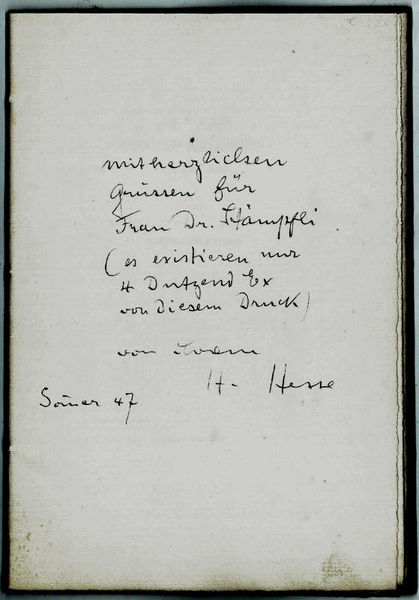 mit herzlichen
Grüssen für
Frau Dr. Stämpfli
(es existieren nur
4 Dutzend Ex
von diesem Druck)
von Ihrem
H. Hesse
Somer 47